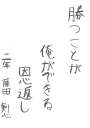 勝つことが
俺ができる
恩返し
二年 原田 烈